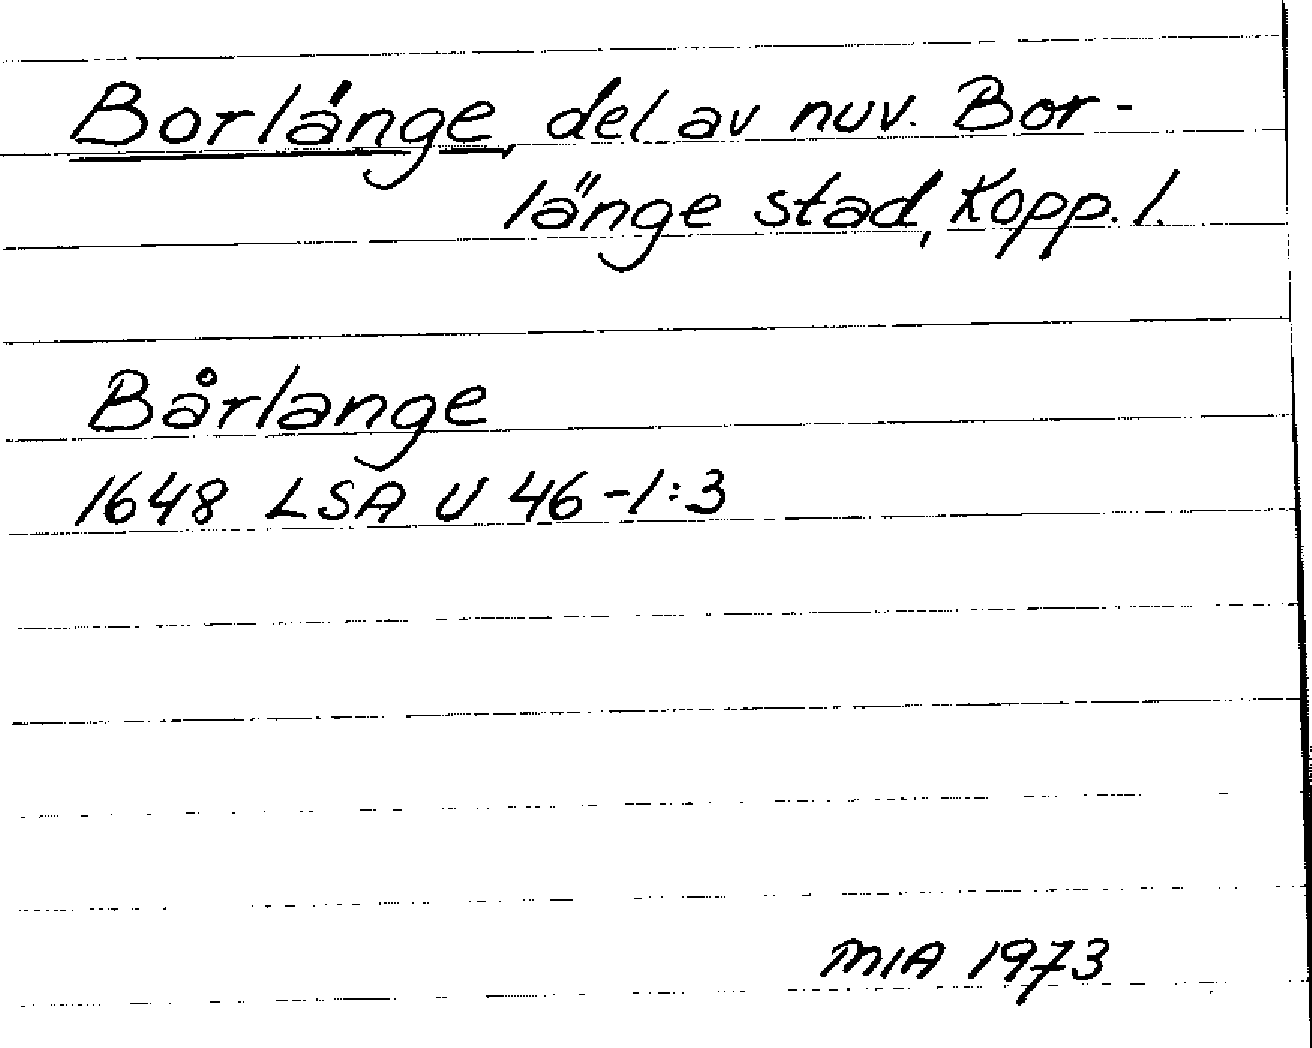 Borlänge, del av nuv. Bor-
länge stad, Kopp. l.
Bårlange
1648 LSA U 46-1:3
MIA 1973